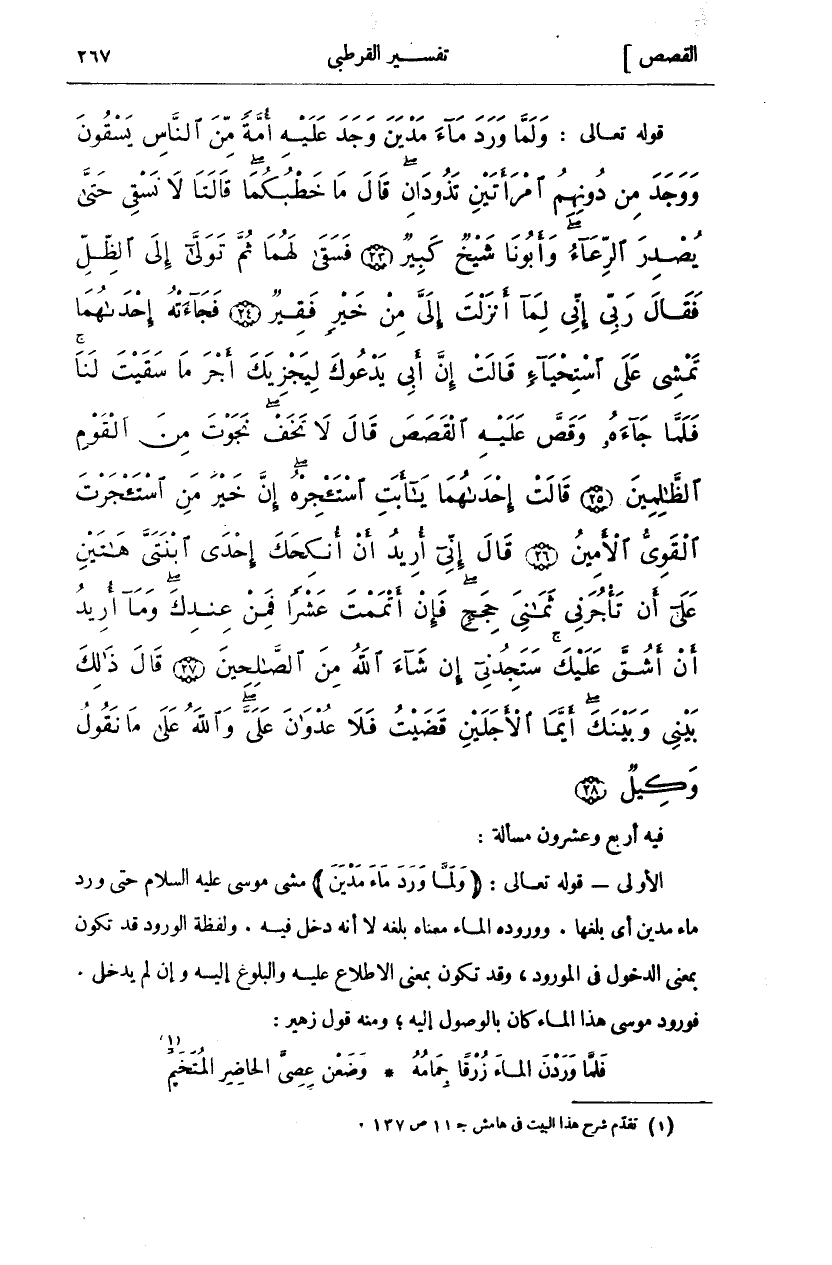 القصص ] تفســير القرطبى ٢٦٧
قوله تعـالى : وَلَمَّا وَرَدَ مَآءَ مَدْيَنَ وَجَدَ عَلَيْهِ أُمَّةً مِّنَ ٱلنَّاسِ يَسْقُونَ
وَوَجَدَ مِن دُونِهِمُ ٱمْرَأَتَيْنِ تَذُودَانِ ۖ قَالَ مَا خَطْبُكُمَا ۖ قَالَتَا لَا نَسْقِى حَتَّىٰ
يُصْدِرَ ٱلرِّعَآءُ ۖ وَأَبُونَا شَيْخٌ كَبِيرٌ ﴿٢٣﴾ فَسَقَىٰ لَهُمَا ثُمَّ تَوَلَّىٰٓ إِلَى ٱلظِّلِّ
فَقَالَ رَبِّ إِنِّى لِمَآ أَنزَلْتَ إِلَىَّ مِنْ خَيْرٍ فَقِيرٌ ﴿٢٤﴾ فَجَآءَتْهُ إِحْدَىٰهُمَا
تَمْشِى عَلَى ٱسْتِحْيَآءٍ قَالَتْ إِنَّ أَبِى يَدْعُوكَ لِيَجْزِيَكَ أَجْرَ مَا سَقَيْتَ لَنَا ۚ
فَلَمَّا جَآءَهُۥ وَقَصَّ عَلَيْهِ ٱلْقَصَصَ قَالَ لَا تَخَفْ ۖ نَجَوْتَ مِنَ ٱلْقَوْمِ
ٱلظَّٰلِمِينَ ﴿٢٥﴾ قَالَتْ إِحْدَىٰهُمَا يَٰٓأَبَتِ ٱسْتَـْٔجِرْهُ ۖ إِنَّ خَيْرَ مَنِ ٱسْتَـْٔجَرْتَ
ٱلْقَوِىُّ ٱلْأَمِينُ ﴿٢٦﴾ قَالَ إِنِّىٓ أُرِيدُ أَنْ أُنكِحَكَ إِحْدَى ٱبْنَتَىَّ هَٰتَيْنِ
عَلَىٰٓ أَن تَأْجُرَنِى ثَمَٰنِىَ حِجَجٍ ۖ فَإِنْ أَتْمَمْتَ عَشْرًا فَمِنْ عِندِكَ ۖ وَمَآ أُرِيدُ
أَنْ أَشُقَّ عَلَيْكَ ۚ سَتَجِدُنِىٓ إِن شَآءَ ٱللَّهُ مِنَ ٱلصَّٰلِحِينَ ﴿٢٧﴾ قَالَ ذَٰلِكَ
بَيْنِى وَبَيْنَكَ ۖ أَيَّمَا ٱلْأَجَلَيْنِ قَضَيْتُ فَلَا عُدْوَٰنَ عَلَىَّ ۖ وَٱللَّهُ عَلَىٰ مَا نَقُولُ
وَكِيلٌ ﴿٢٨﴾
فيه أربع وعشرون مسألة :
الأولى — قوله تعـالى : ﴿ وَلَمَّا وَرَدَ مَاءَ مَدْيَنَ ﴾ مشى موسى عليه السلام حتى ورد
ماء مدين أى بلغها . ووروده المـاء معناه بلغه لا أنه دخل فيـه . ولفظة الورود قد تكون
بمعنى الدخول فى المورود ، وقد تكون بمعنى الاطلاع عليـه والبلوغ إليـه وإن لم يدخل .
فورود موسى هذا المـاء كان بالوصول إليه ؛ ومنه قول زهير :
فَلمَّا وَرَدْنَ المـاءَ زُرْقًا جِمَامُهُ * وَضَعْن عِصِىَّ الحَاضِرِ المُتَخَيِّمِ (١)
(١) تقدّم شرح هذا البيت فى هامش جـ ١١ ص ١٣٧ .